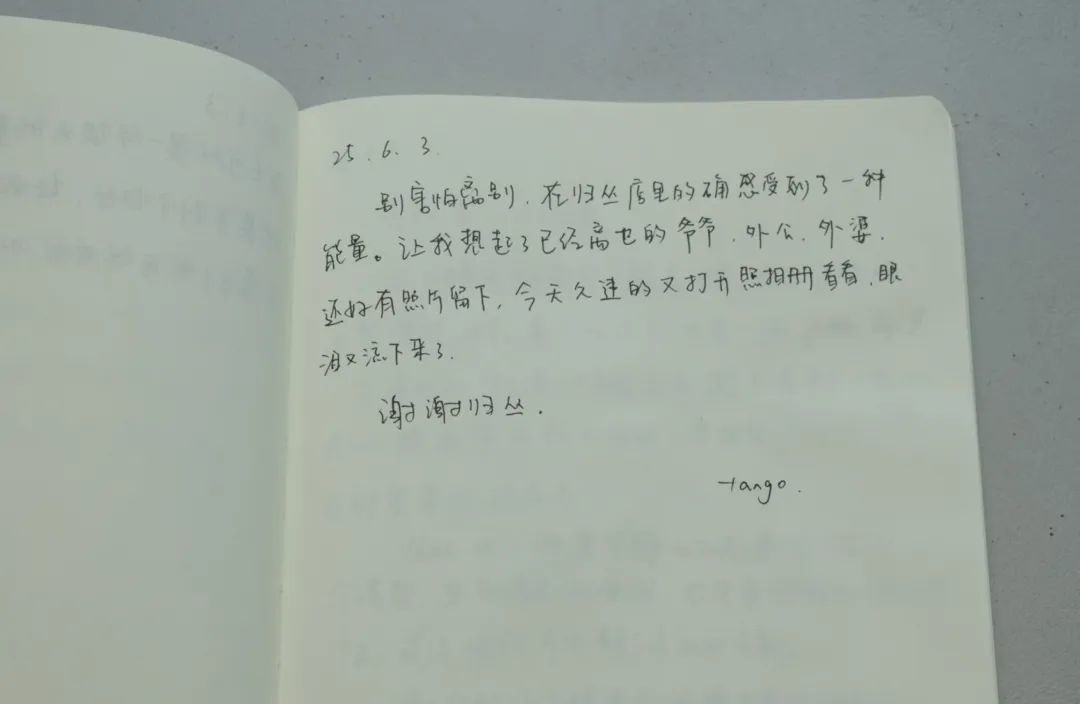 25.6.3.
别害怕离别.在归丛店里的确感受到了一种
能量。让我想起了已经离世的爷爷.外公.外婆.
还好有照片留下.今天久违的又打开照相册看看.眼
泪又流下来了.
谢谢归丛.
tango.